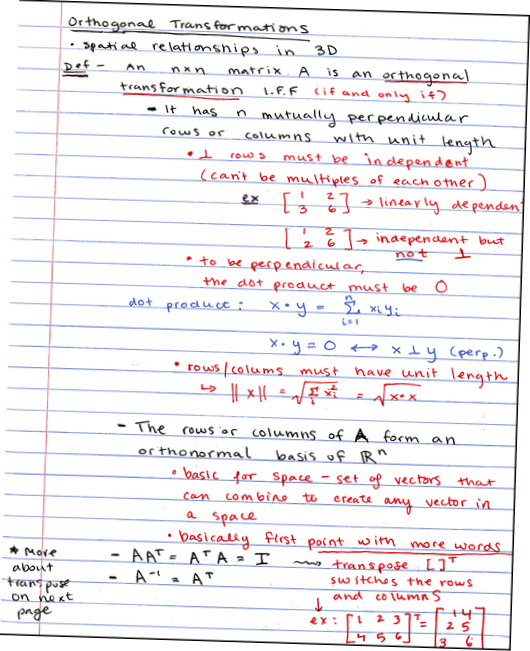 Orthogonal Transformations
• spatial relationships in 3D
Def - An nxn matrix A is an orthogonal
transformation I.F.F (if and only if)
- It has n mutually perpendicular
rows or columns with unit length
• ⊥ rows must be independent
(can't be multiples of each other)
ex [1 2; 3 6] → linearly dependent
[1 2; 2 6] → independent but
not ⊥
• to be perpendicular,
the dot product must be 0
dot product: x • y = Σ_{i=1}^{n} xᵢyᵢ
x • y = 0 ↔ x ⊥ y (perp.)
• rows/colums must have unit length
↳ ||x|| = √(Σᵢ xᵢ²) = √(x•x)
- The rows or columns of A form an
orthonormal basis of ℝⁿ
• basic for space - set of vectors that
can combine to create any vector in
a space
• basically first point with more words
- AAᵀ = AᵀA = I ⇝ transpose [ ]ᵀ
- A⁻¹ = Aᵀ switches the rows
and columns
* More
about
transpose
on next
page
↓
ex: [1 2 3; 4 5 6]ᵀ = [1 4; 2 5; 3 6]